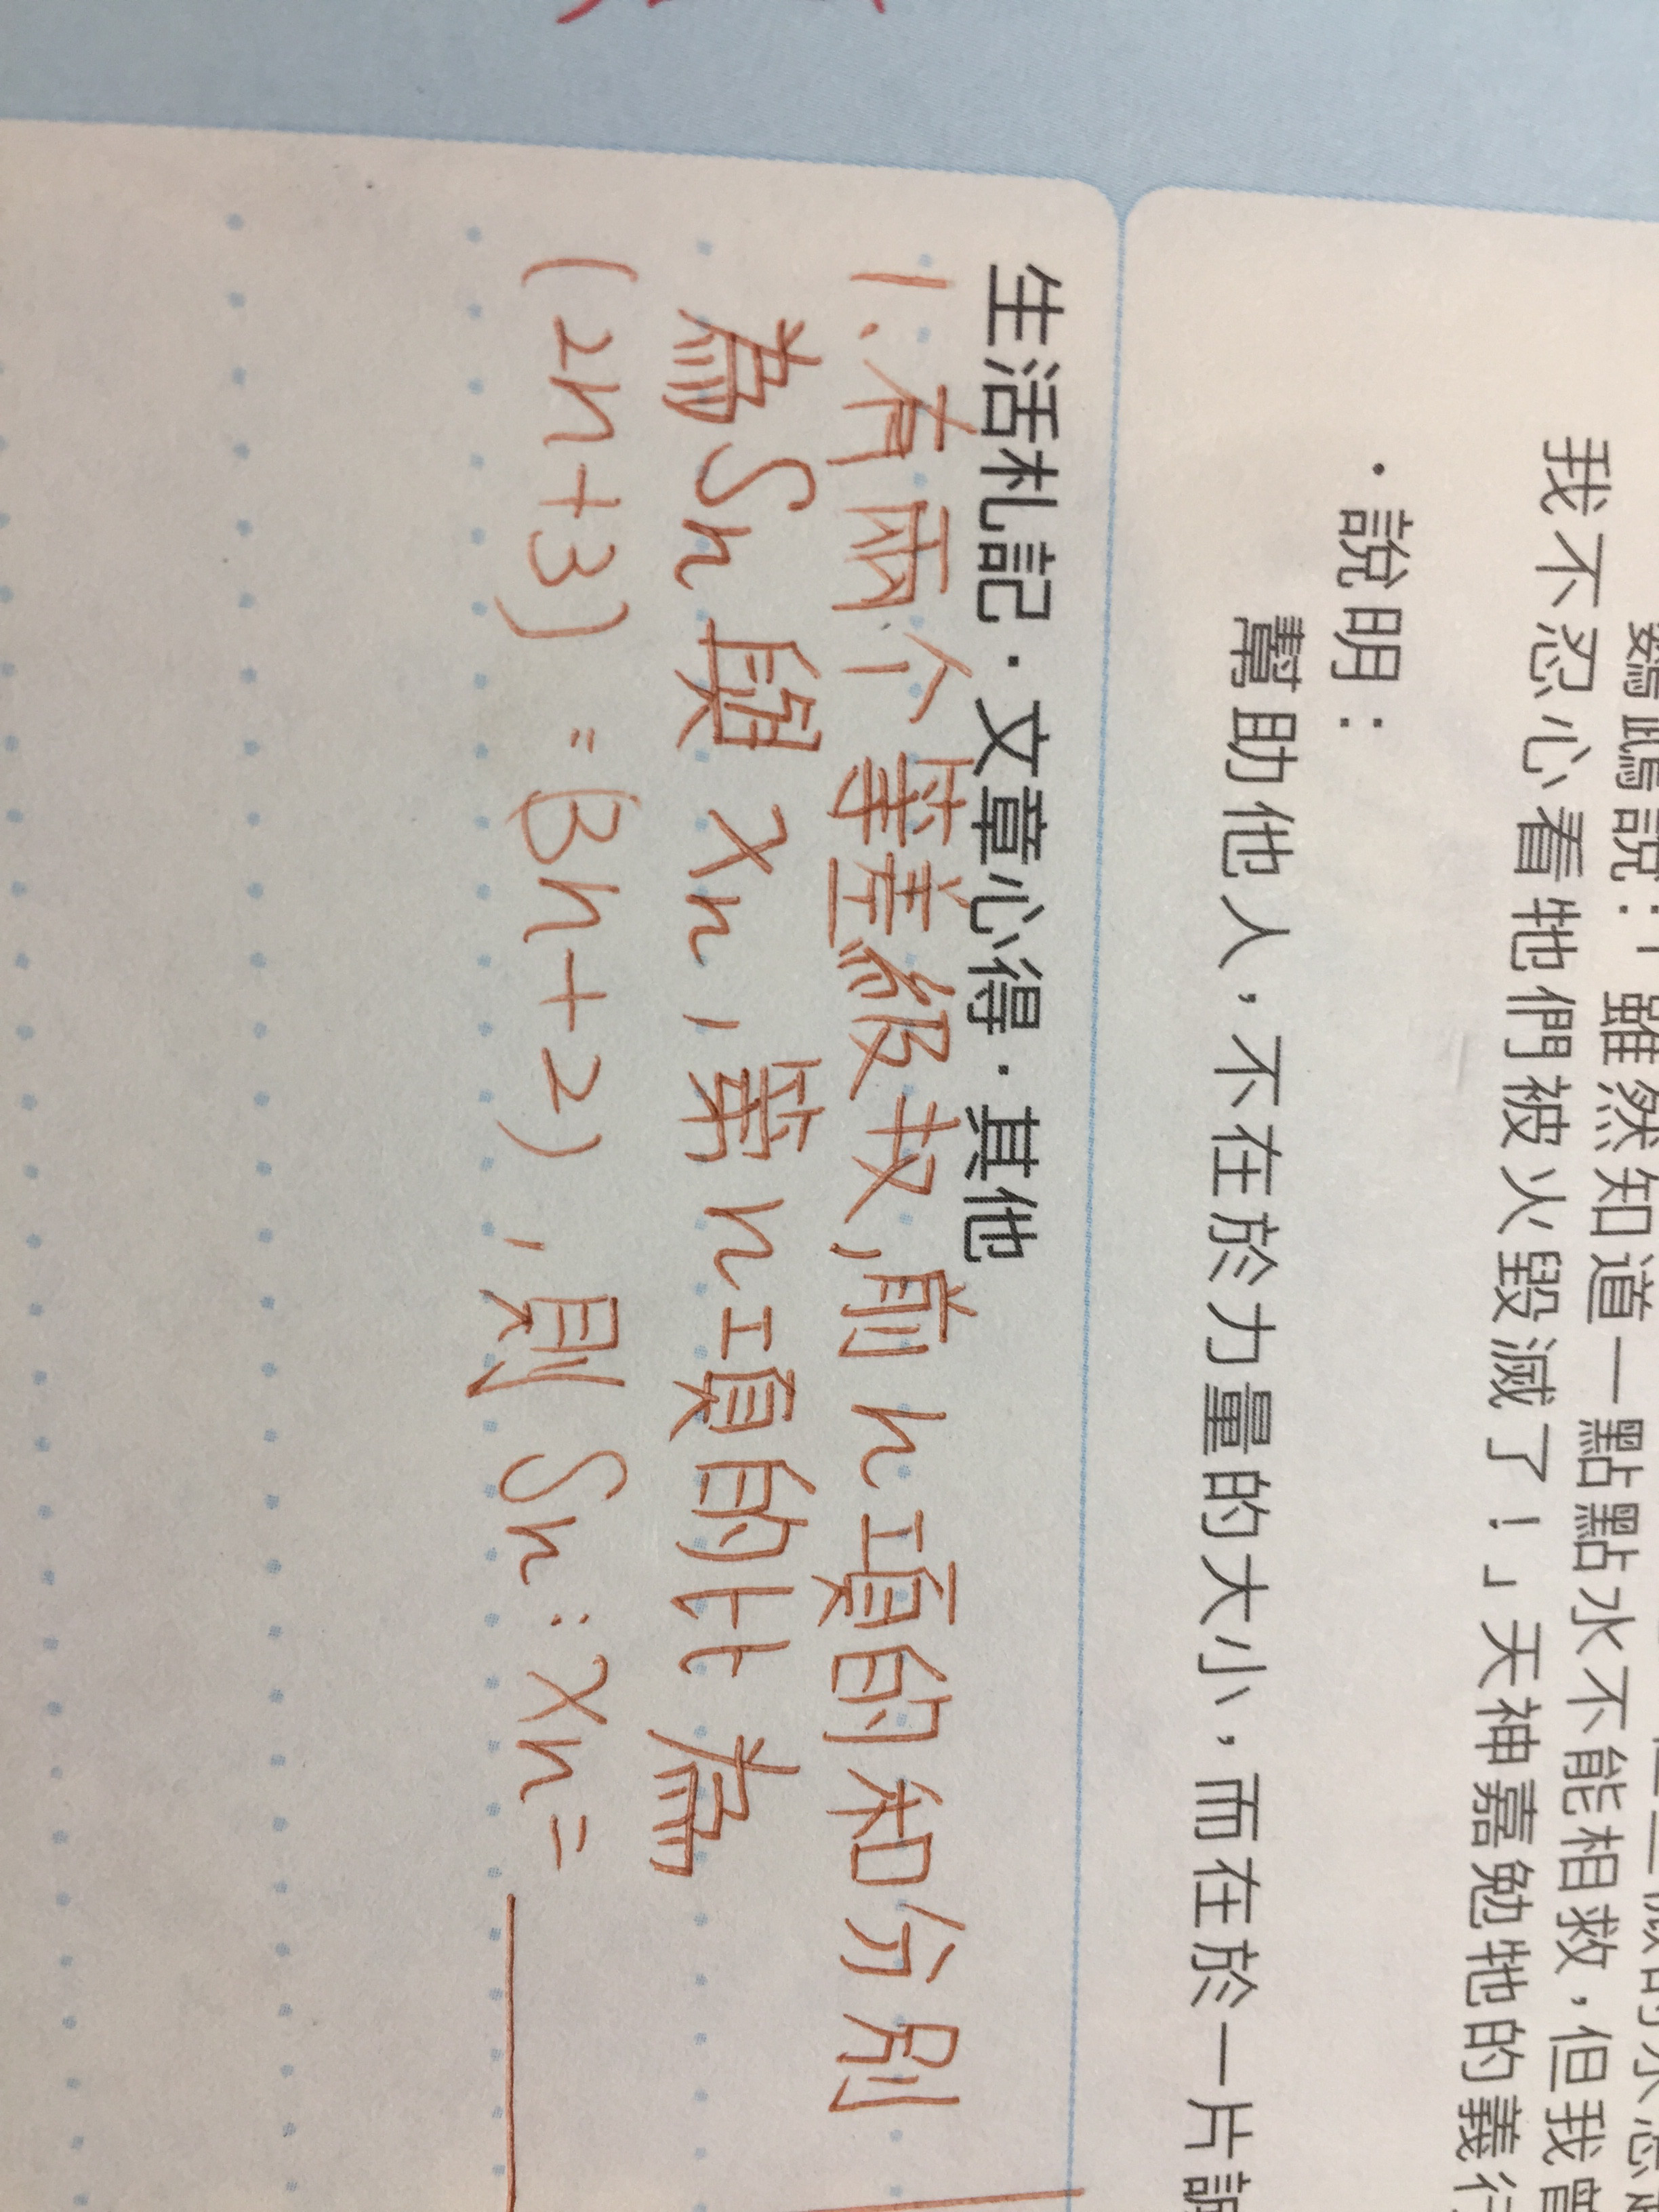 我不忍心看牠們被火毀滅了！」天神嘉勉牠的義行
・說明：
幫助他人，不在於力量的大小，而在於一片誠
生活札記・文章心得・其他
1.有兩个等差級技,前n項的和分別
為Sn與Xn,第n項的比為
(2n+3)=(3n+2),則Sn:Xn=